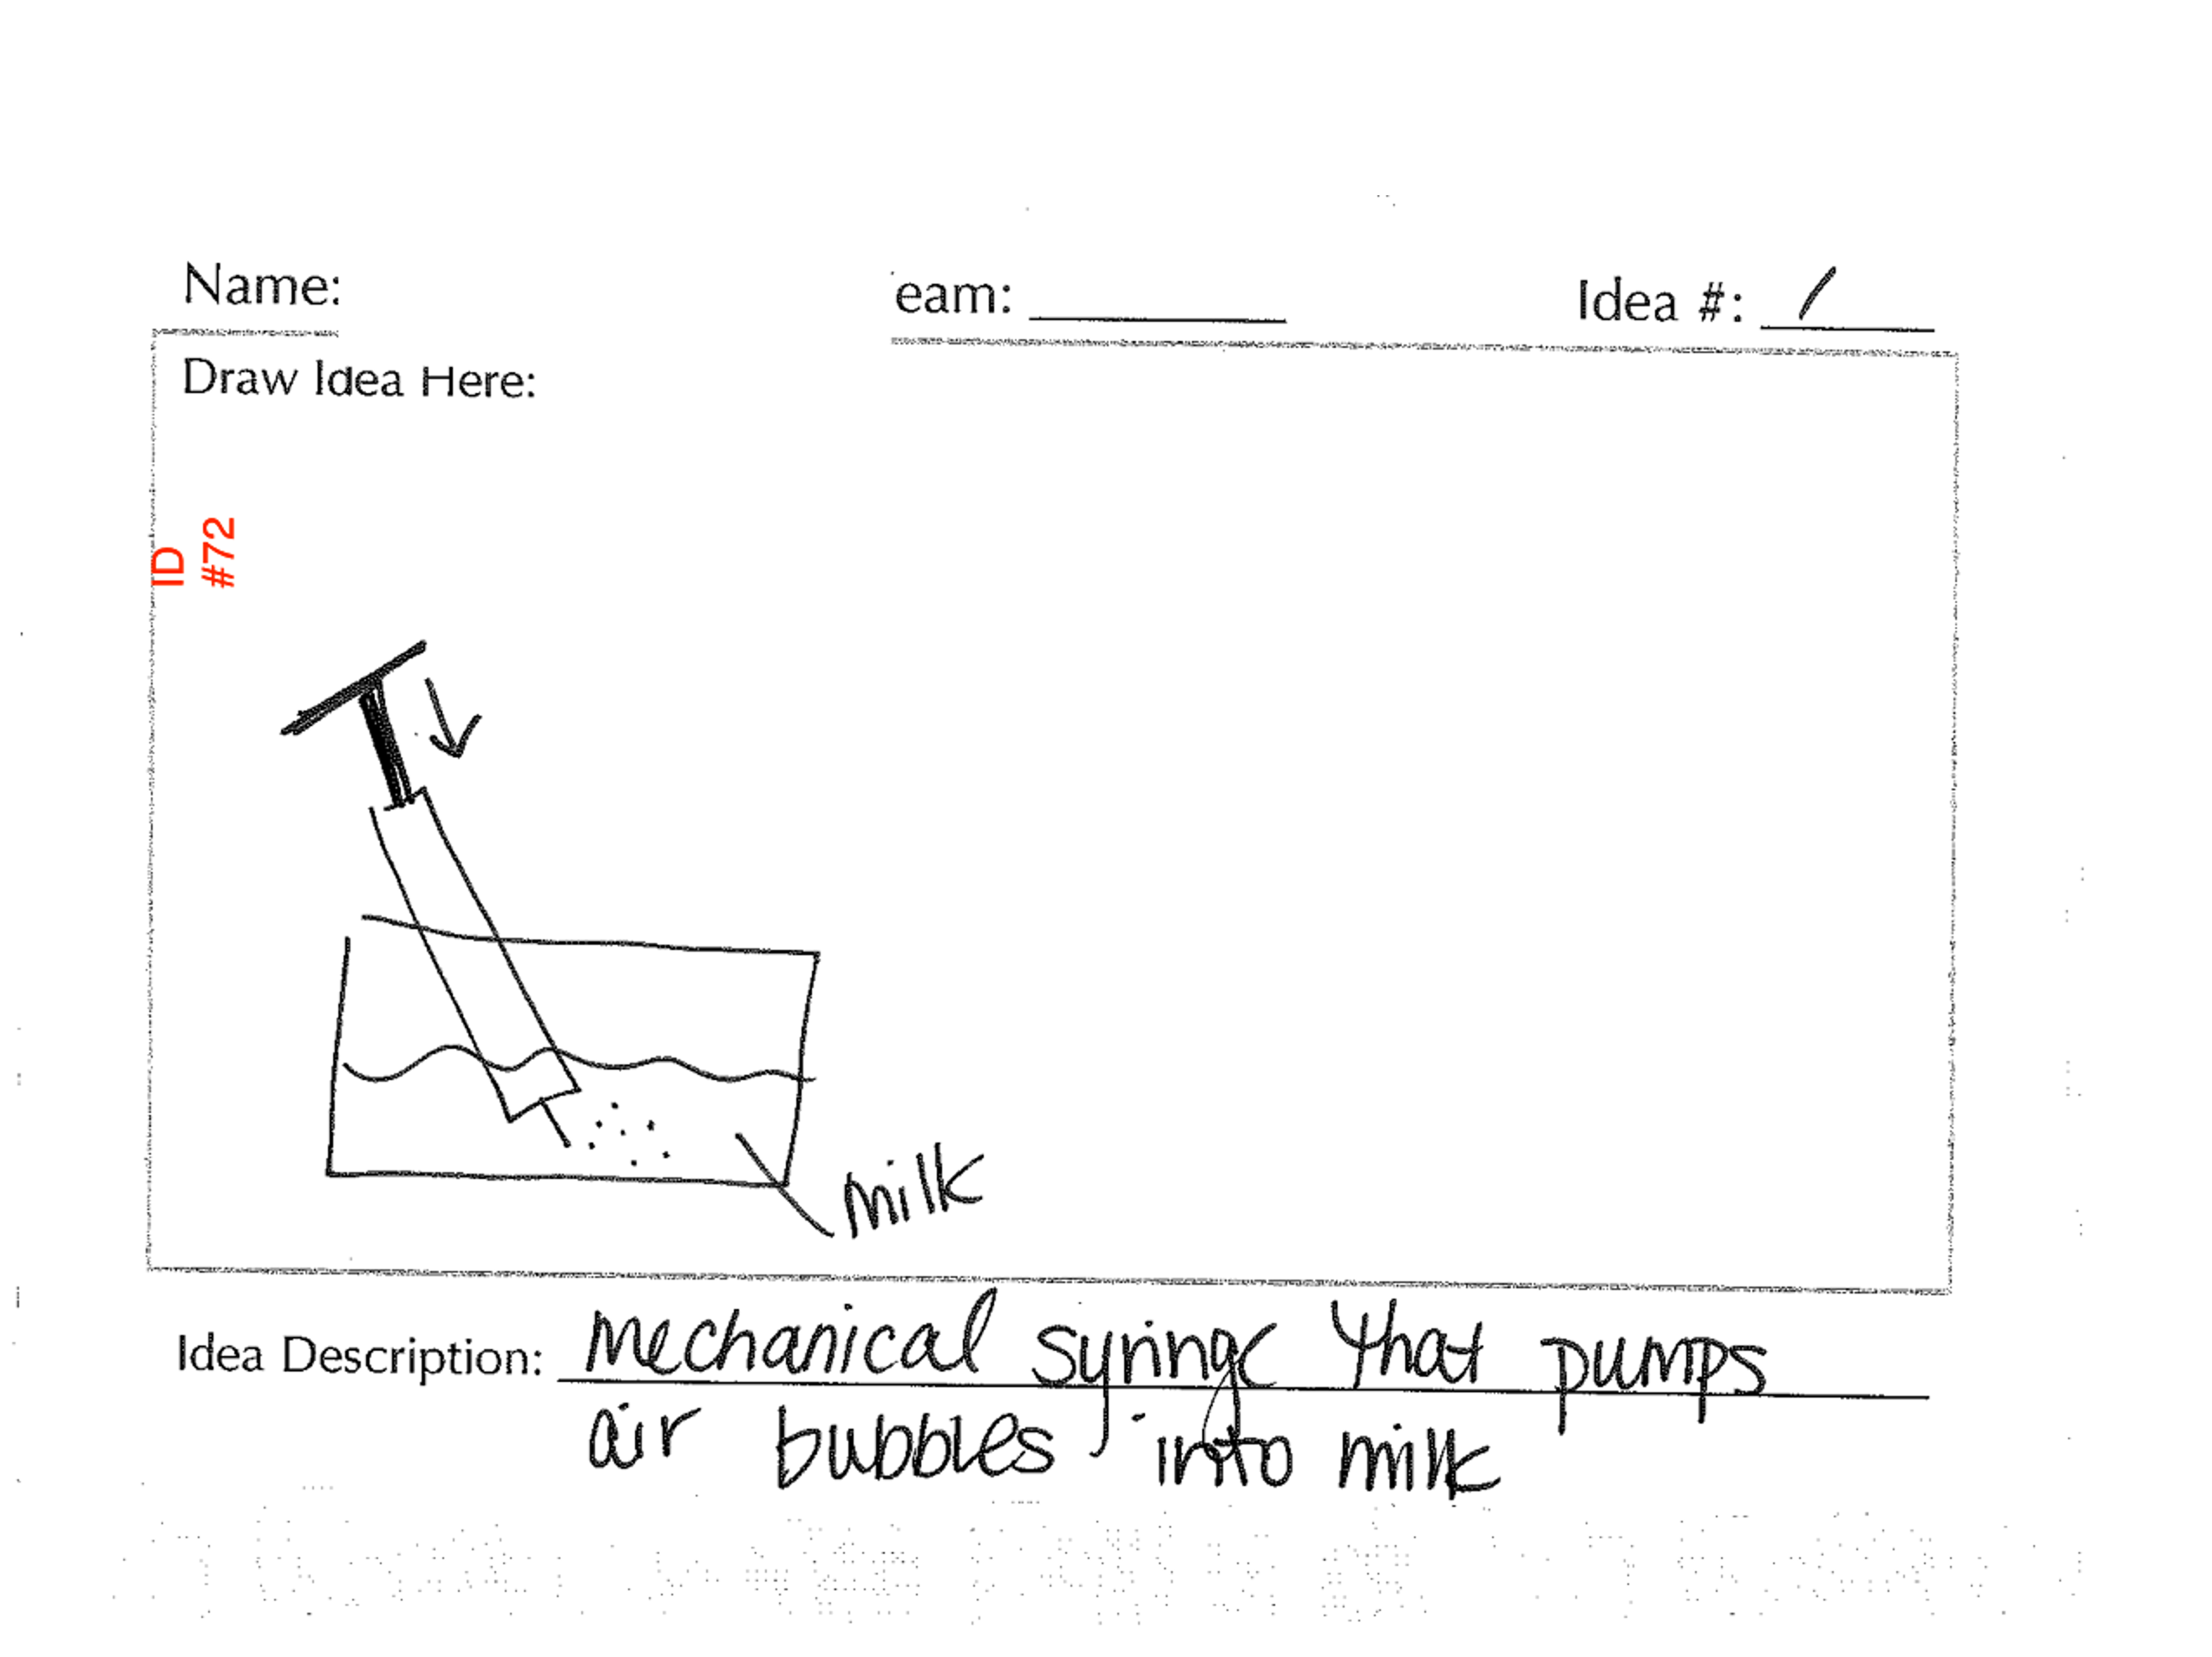 Name:
eam: Idea #: 1
Draw Idea Here:
ID
#72
milk
Idea Description: Mechanical syringe that pumps
air bubbles into milk